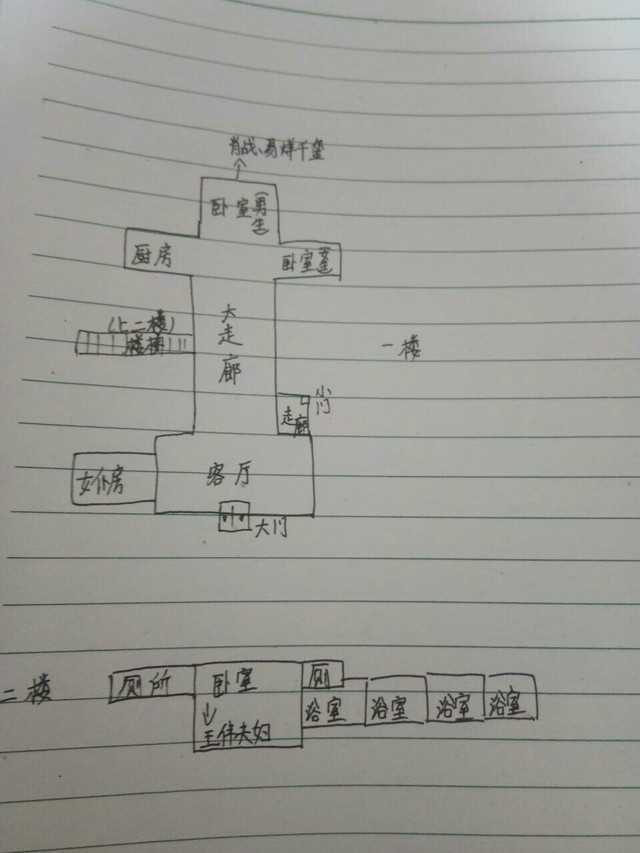 肖战、易烊千玺
卧室(男生)
厨房
卧室(莲)
大走廊
(上二楼)
楼梯
一楼
小门
走廊
客厅
女仆房
大门
二楼
厕所
卧室
厕
王伟夫妇
浴室 浴室 浴室 浴室